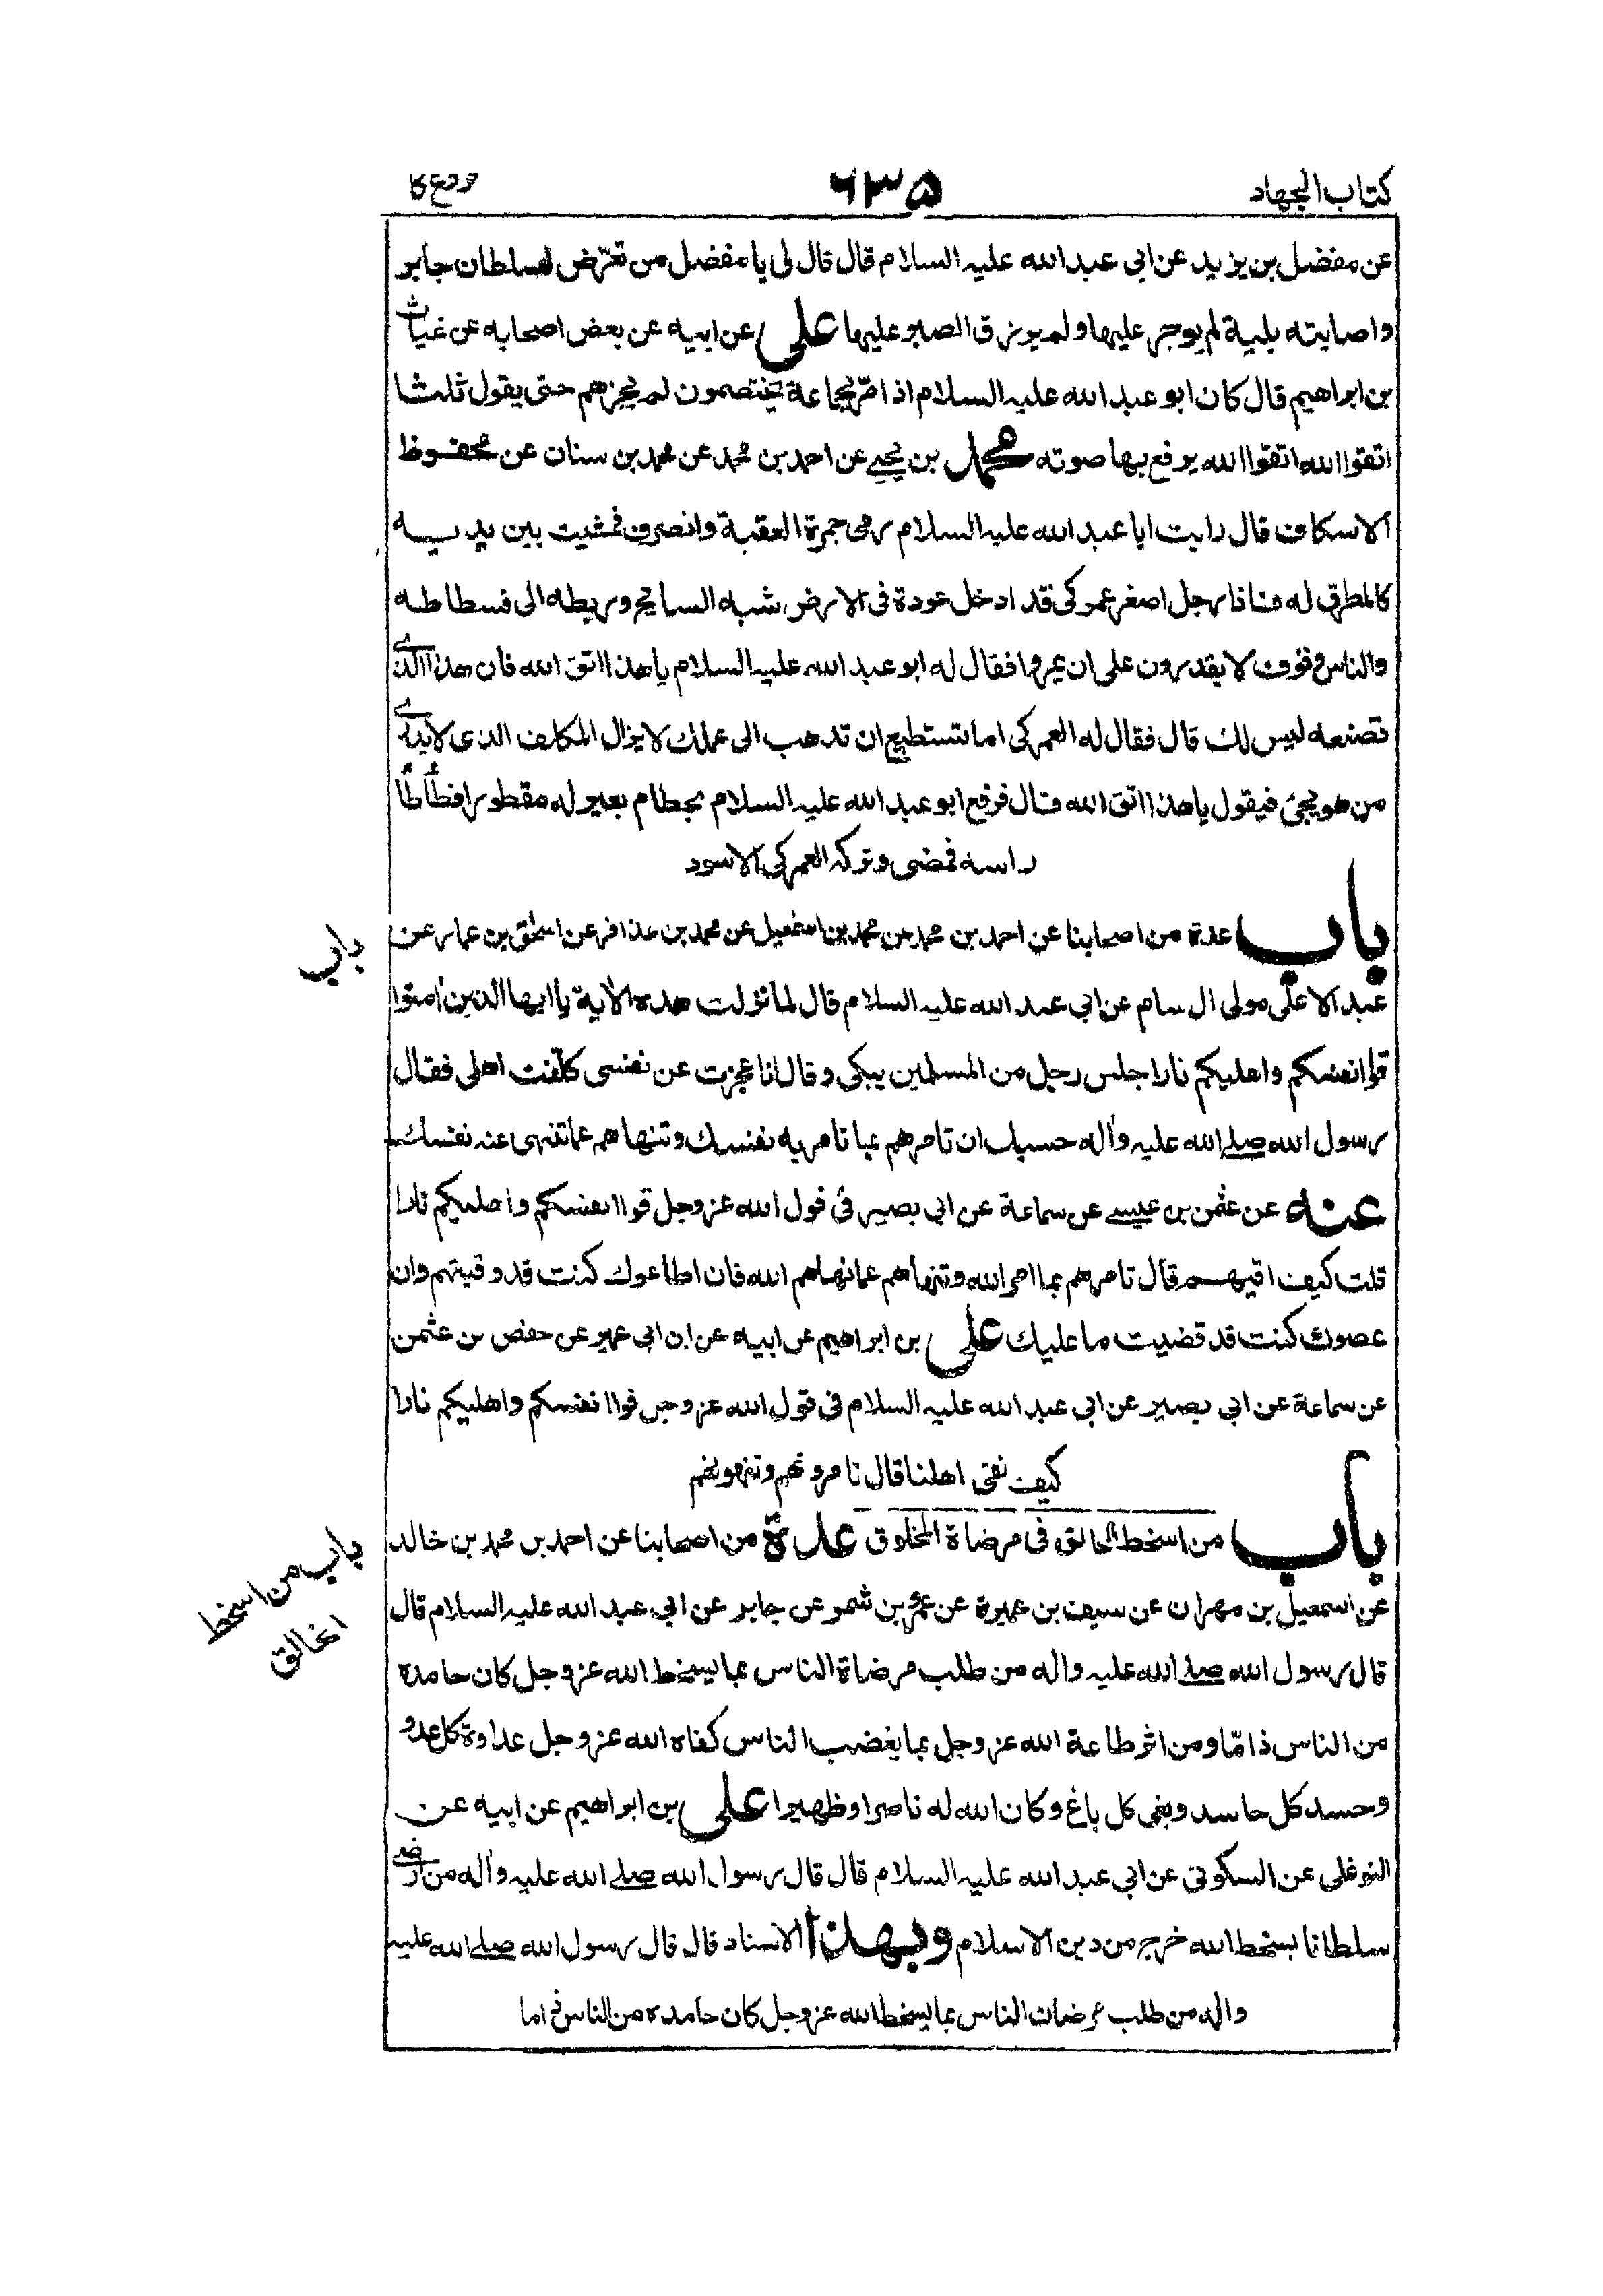 كتاب الجهاد
٦٣٥
عن مفضل بن يزيد عن ابى عبد الله عليه السلام قال قال لى يا مفضل من تعرّض لسلطان جابر
واصابته بلية لم يوجر عليها ولم يرزق الصبر عليها على عن ابيه عن بعض اصحابه عن غياث
بن ابراهيم قال كان ابو عبد الله عليه السلام اذا مرّ بجماعة يختصمون لم يجزهم حتى يقول ثلثا
اتقوا الله اتقوا الله يرفع بها صوته محمد بن يحيى عن احمد بن محمد عن محمد بن سنان عن محفوظ
الاسكاف قال رايت ابا عبد الله عليه السلام رمى جمرة العقبة وانصرف فمشيت بين يديه
كالمطرق له فاذا رجل اصغر عمركى قد ادخل عودة فى الارض شبه السابح وربطه الى فسطاطه
والناس وقوف لا يقدرون على ان يمروا فقال له ابو عبد الله عليه السلام يا هذا اتق الله فان هذا الذى
تصنعه ليس لك قال فقال له العمركى اما تستطيع ان تذهب الى عملك لا يزال المكلف الذى لا يدرى
من هو يجئ فيقول يا هذا اتق الله قال فرفع ابو عبد الله عليه السلام بخطام بعير له مقطورا فطأطأ
راسه فمضى وتركه العمركى الاسود
باب
باب عدة من اصحابنا عن احمد بن محمد عن محمد بن اسمعيل عن محمد بن عذافر عن اسحق بن عمار عن
عبد الاعلى مولى ال سام عن ابى عبد الله عليه السلام قال لما نزلت هذه الاية يا ايها الذين امنوا
قوا انفسكم واهليكم نارا جلس رجل من المسلمين يبكى وقال انا عجزت عن نفسى كلّفت اهلى فقال
رسول الله صلى الله عليه واله حسبك ان تامرهم بما تامر به نفسك وتنهاهم عما تنهى عنه نفسك
عنه عن عثمن بن عيسى عن سماعة عن ابى بصير فى قول الله عز وجل قوا انفسكم واهليكم نارا
قلت كيف اقيهم قال تامرهم بما امر الله وتنهاهم عما نهاهم الله فان اطاعوك كنت قد وقيتهم وان
عصوك كنت قد قضيت ما عليك على بن ابراهيم عن ابيه عن ابن ابى عمير عن حفص بن عثمن
عن سماعة عن ابى بصير عن ابى عبد الله عليه السلام فى قول الله عز وجل قوا انفسكم واهليكم نارا
كيف نقى اهلنا قال تامرونهم وتنهونهم
باب من اسخط الخالق
باب من اسخط الخالق فى مرضاة المخلوق عدة من اصحابنا عن احمد بن محمد بن خالد
عن اسمعيل بن مهران عن سيف بن عميرة عن عمرو بن شمر عن جابر عن ابى عبد الله عليه السلام قال
قال رسول الله صلى الله عليه واله من طلب مرضاة الناس بما يسخط الله عز وجل كان حامده
من الناس ذامّا ومن اثر طاعة الله عز وجل بما يغضب الناس كفاه الله عز وجل عداوة كل عدو
وحسد كل حاسد وبغى كل باغ وكان الله له ناصرا وظهيرا على بن ابراهيم عن ابيه عن
النوفلى عن السكونى عن ابى عبد الله عليه السلام قال قال رسول الله صلى الله عليه واله من ارضى
سلطانا بسخط الله خرج من دين الاسلام وبهذا الاسناد قال قال رسول الله صلى الله عليه
واله من طلب مرضات الناس بما يسخط الله عز وجل كان حامده من الناس ذاما